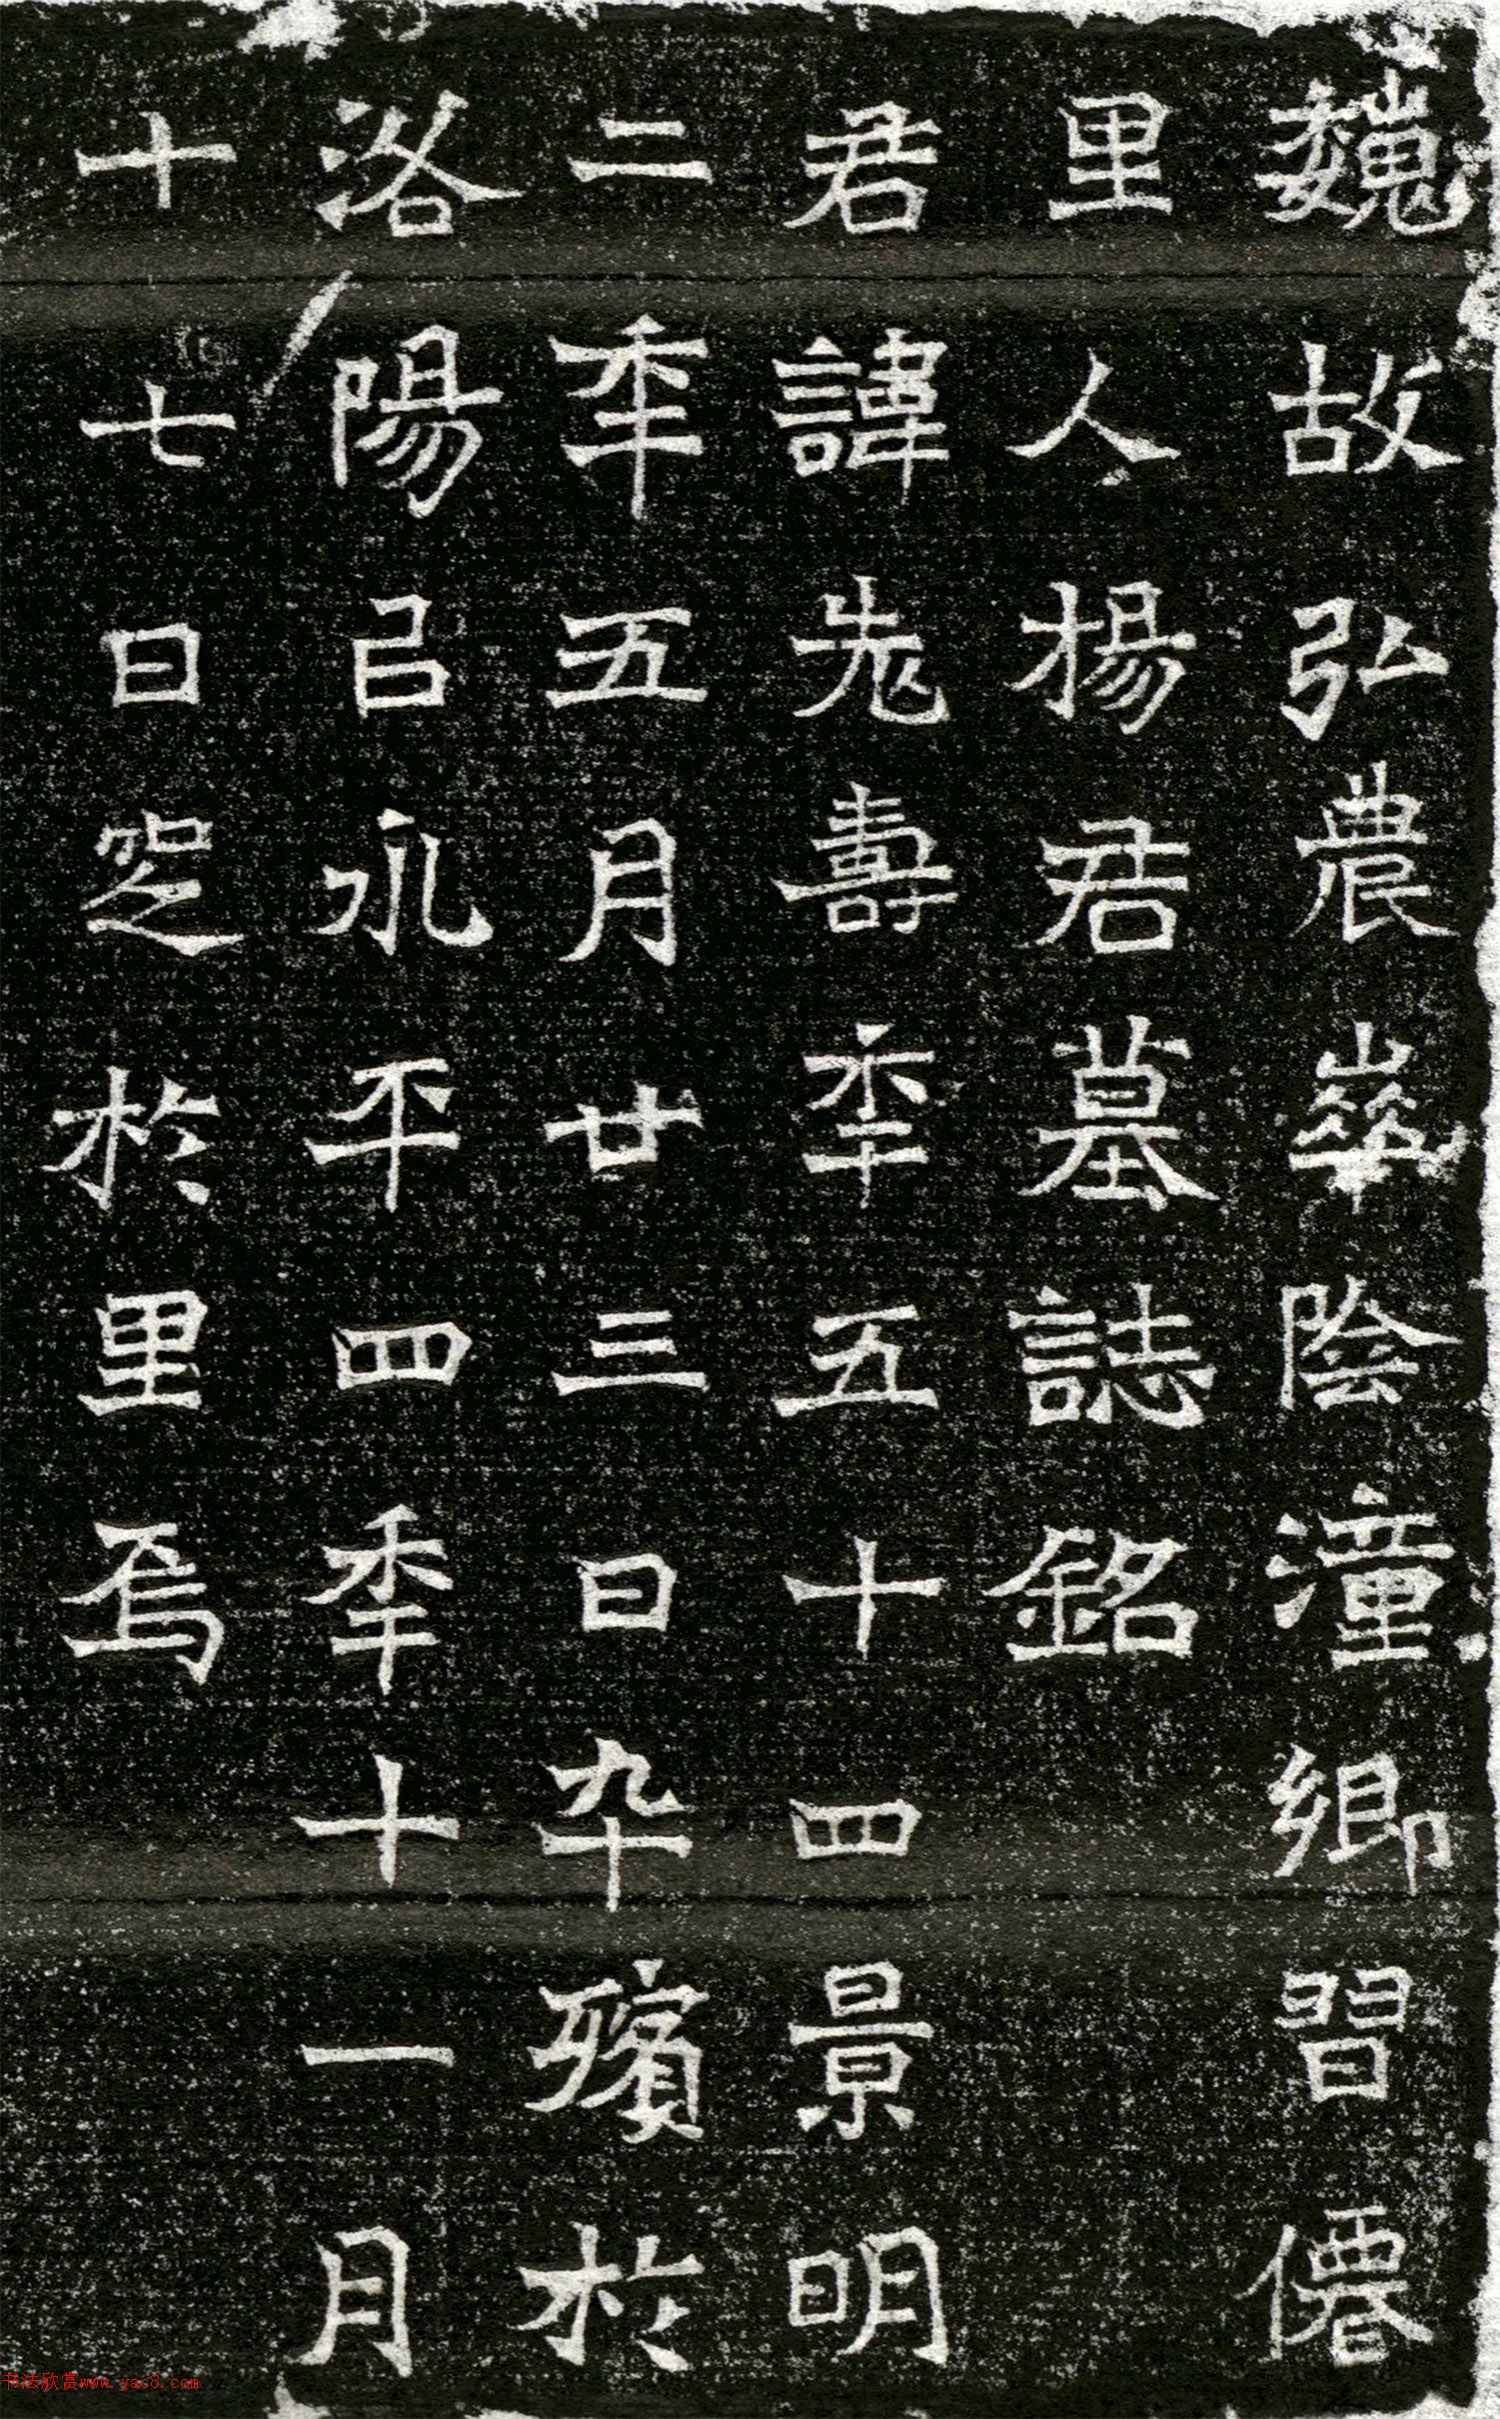 魏故弘農華陰潼鄉習僊
里人楊君墓誌銘
君諱兂壽年五十四景明
二年五月廿三日卒殯於
洛陽以永平四年十一月
十七日窆於里焉
书法欣赏www.yac8.com